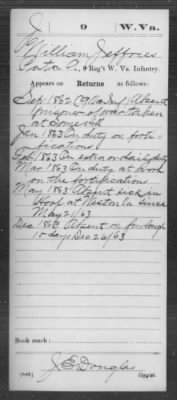 J 9 W.Va.
William Jeffries
Private, Co. A, 9 Reg't W. Va. Infantry.
Appears on
Returns as follows:
Sep 1862 Absent
Prisoner of war taken
at
Jan 1863 On duty on forti-
fications
Feb 1863 On extra or daily duty
Mar 1863 On duty at work
on the fortification
May 1863 Absent sick in
Hosp at Weston Va since
May 21/63
Dec 186 Absent on furlough
15 days Dec 26/63
Book mark:
J. E. Douglas
(546) Copyist.